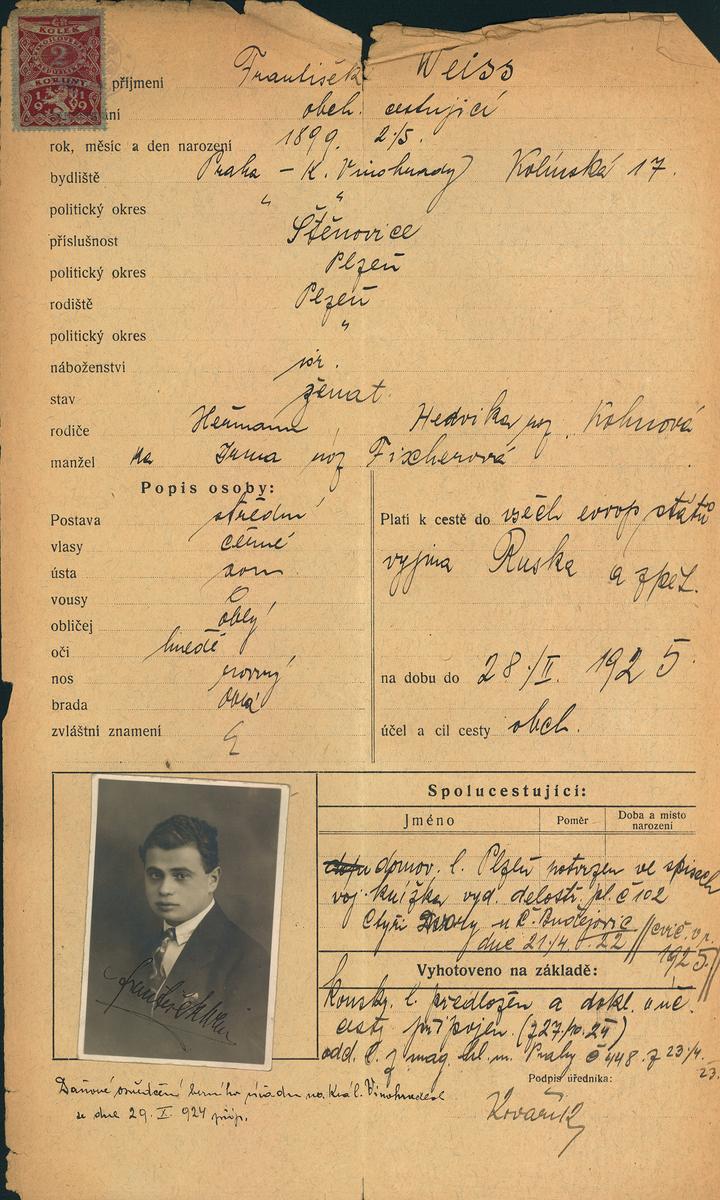 KOLEK
2
KORUNY
1919
příjmení František Weiss
obch. cestující
rok, měsíc a den narození 1899. 2/5.
bydliště Praha - K. Vinohrady Kolínská 17.
politický okres " "
příslušnost Štěnovice
politický okres Plzeň
rodiště Plzeň
politický okres "
náboženství isr.
stav ženat.
rodiče Heřmann, Hedvika roz. Kohnová
manžel ka Irma roz Fischerová
Popis osoby:
Postava střední
vlasy černé
ústa
vousy
obličej oblý
oči hnědé
nos rovný
brada oblá
zvláštní znamení
Platí k cestě do všech evrop států
vyjma Ruska a zpět.
na dobu do 28./II. 1925
účel a cíl cesty obch.
Spolucestující:
Jméno Poměr Doba a místo narození
domov. l. Plzeň potvrzen ve spisech
voj. knížka vyd. delostř. pl. č 102
Čtyři Dvory u Č. Budějovic
dne 21/4. 22 // cvič. v r. 1925 //
Vyhotoveno na základě:
konsky. l. předložen a dokl. o úč.
cesty připojen. (327/10.24)
odd. l. z mag. hl. m. Prahy č 448. z 23/4. 23.
Podpis úředníka:
Kovařík
Daňové osvědčení berního úřadu na Král. Vinohradech
ze dne 29. I. 924 přip.